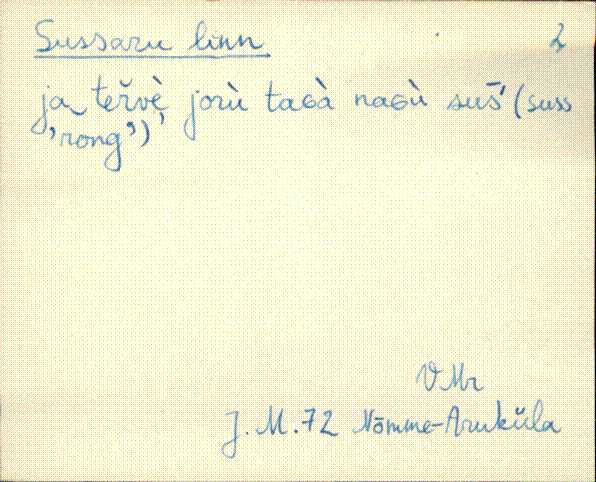 Sussaru linn 2
ja tervè̬ jorù taɢà naɢù suš́ (suss
'rong')
VMr
J. M. 72 Nõmme-Aruküla